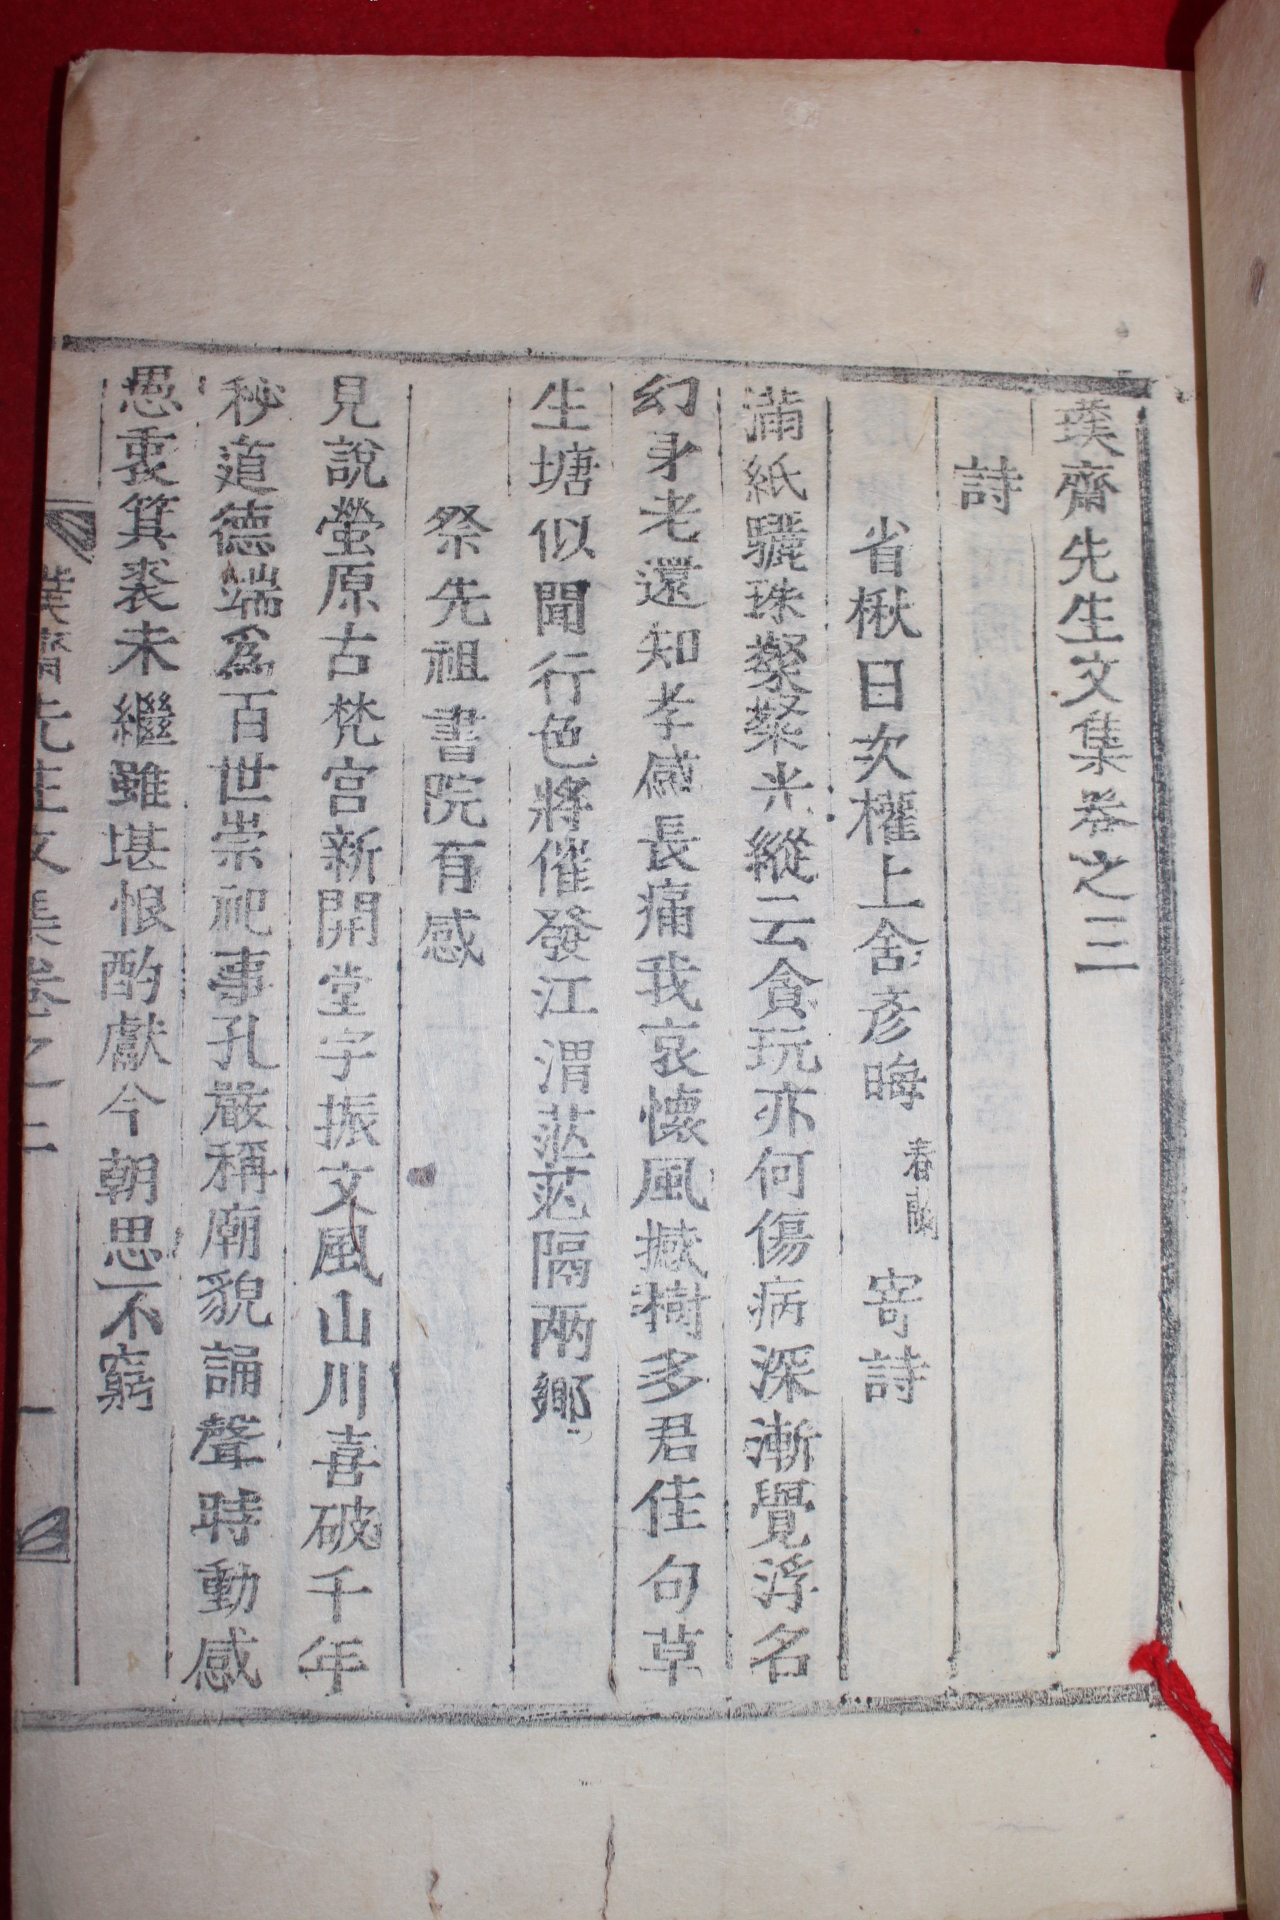 璞齋先生文集卷之三
詩
省楸日次權上舍彦晦春蘭寄詩
滿紙驪珠粲粲光縱云貪玩亦何傷病深漸覺浮名
幻身老還知孝感長痛我哀懷風撼樹多君佳句草
生塘似聞行色將催發江渭茫茫隔兩鄉
祭先祖書院有感
見說螢原古梵宮新開堂宇振文風山川喜破千年
秘道德端爲百世崇祀事孔嚴稱廟貌誦聲時動感
愚衷箕裘未繼雖堪恨酌獻今朝思不窮
璞齋先生文集卷之三
一